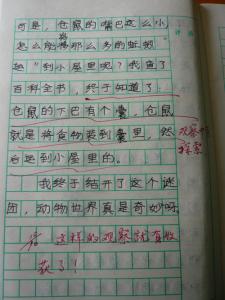 可是，仓鼠的嘴巴这么小
怎么能将那么多的蚯蚓
运“到小屋里呢？我查了
百科全书，终于知道了，
仓鼠的下巴有个囊，仓鼠
就是将食物装到囊里，然
后运到小屋里的。
观察
探索
我终于结开了这个谜
团，动物世界真是奇妙啊。
这样的观察就有收
获了！